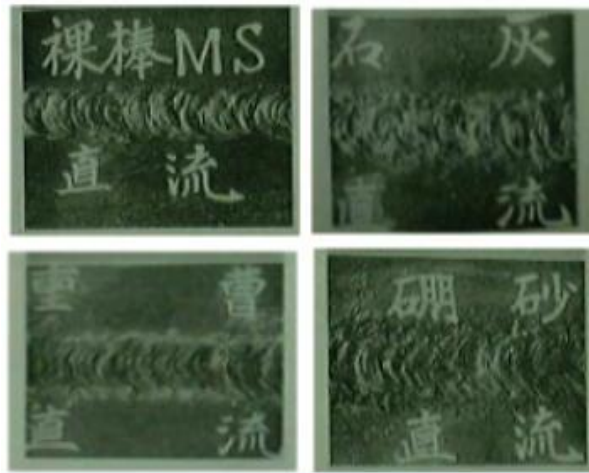 裸棒MS
直流
石灰
直流
重曹
直流
硼砂
直流